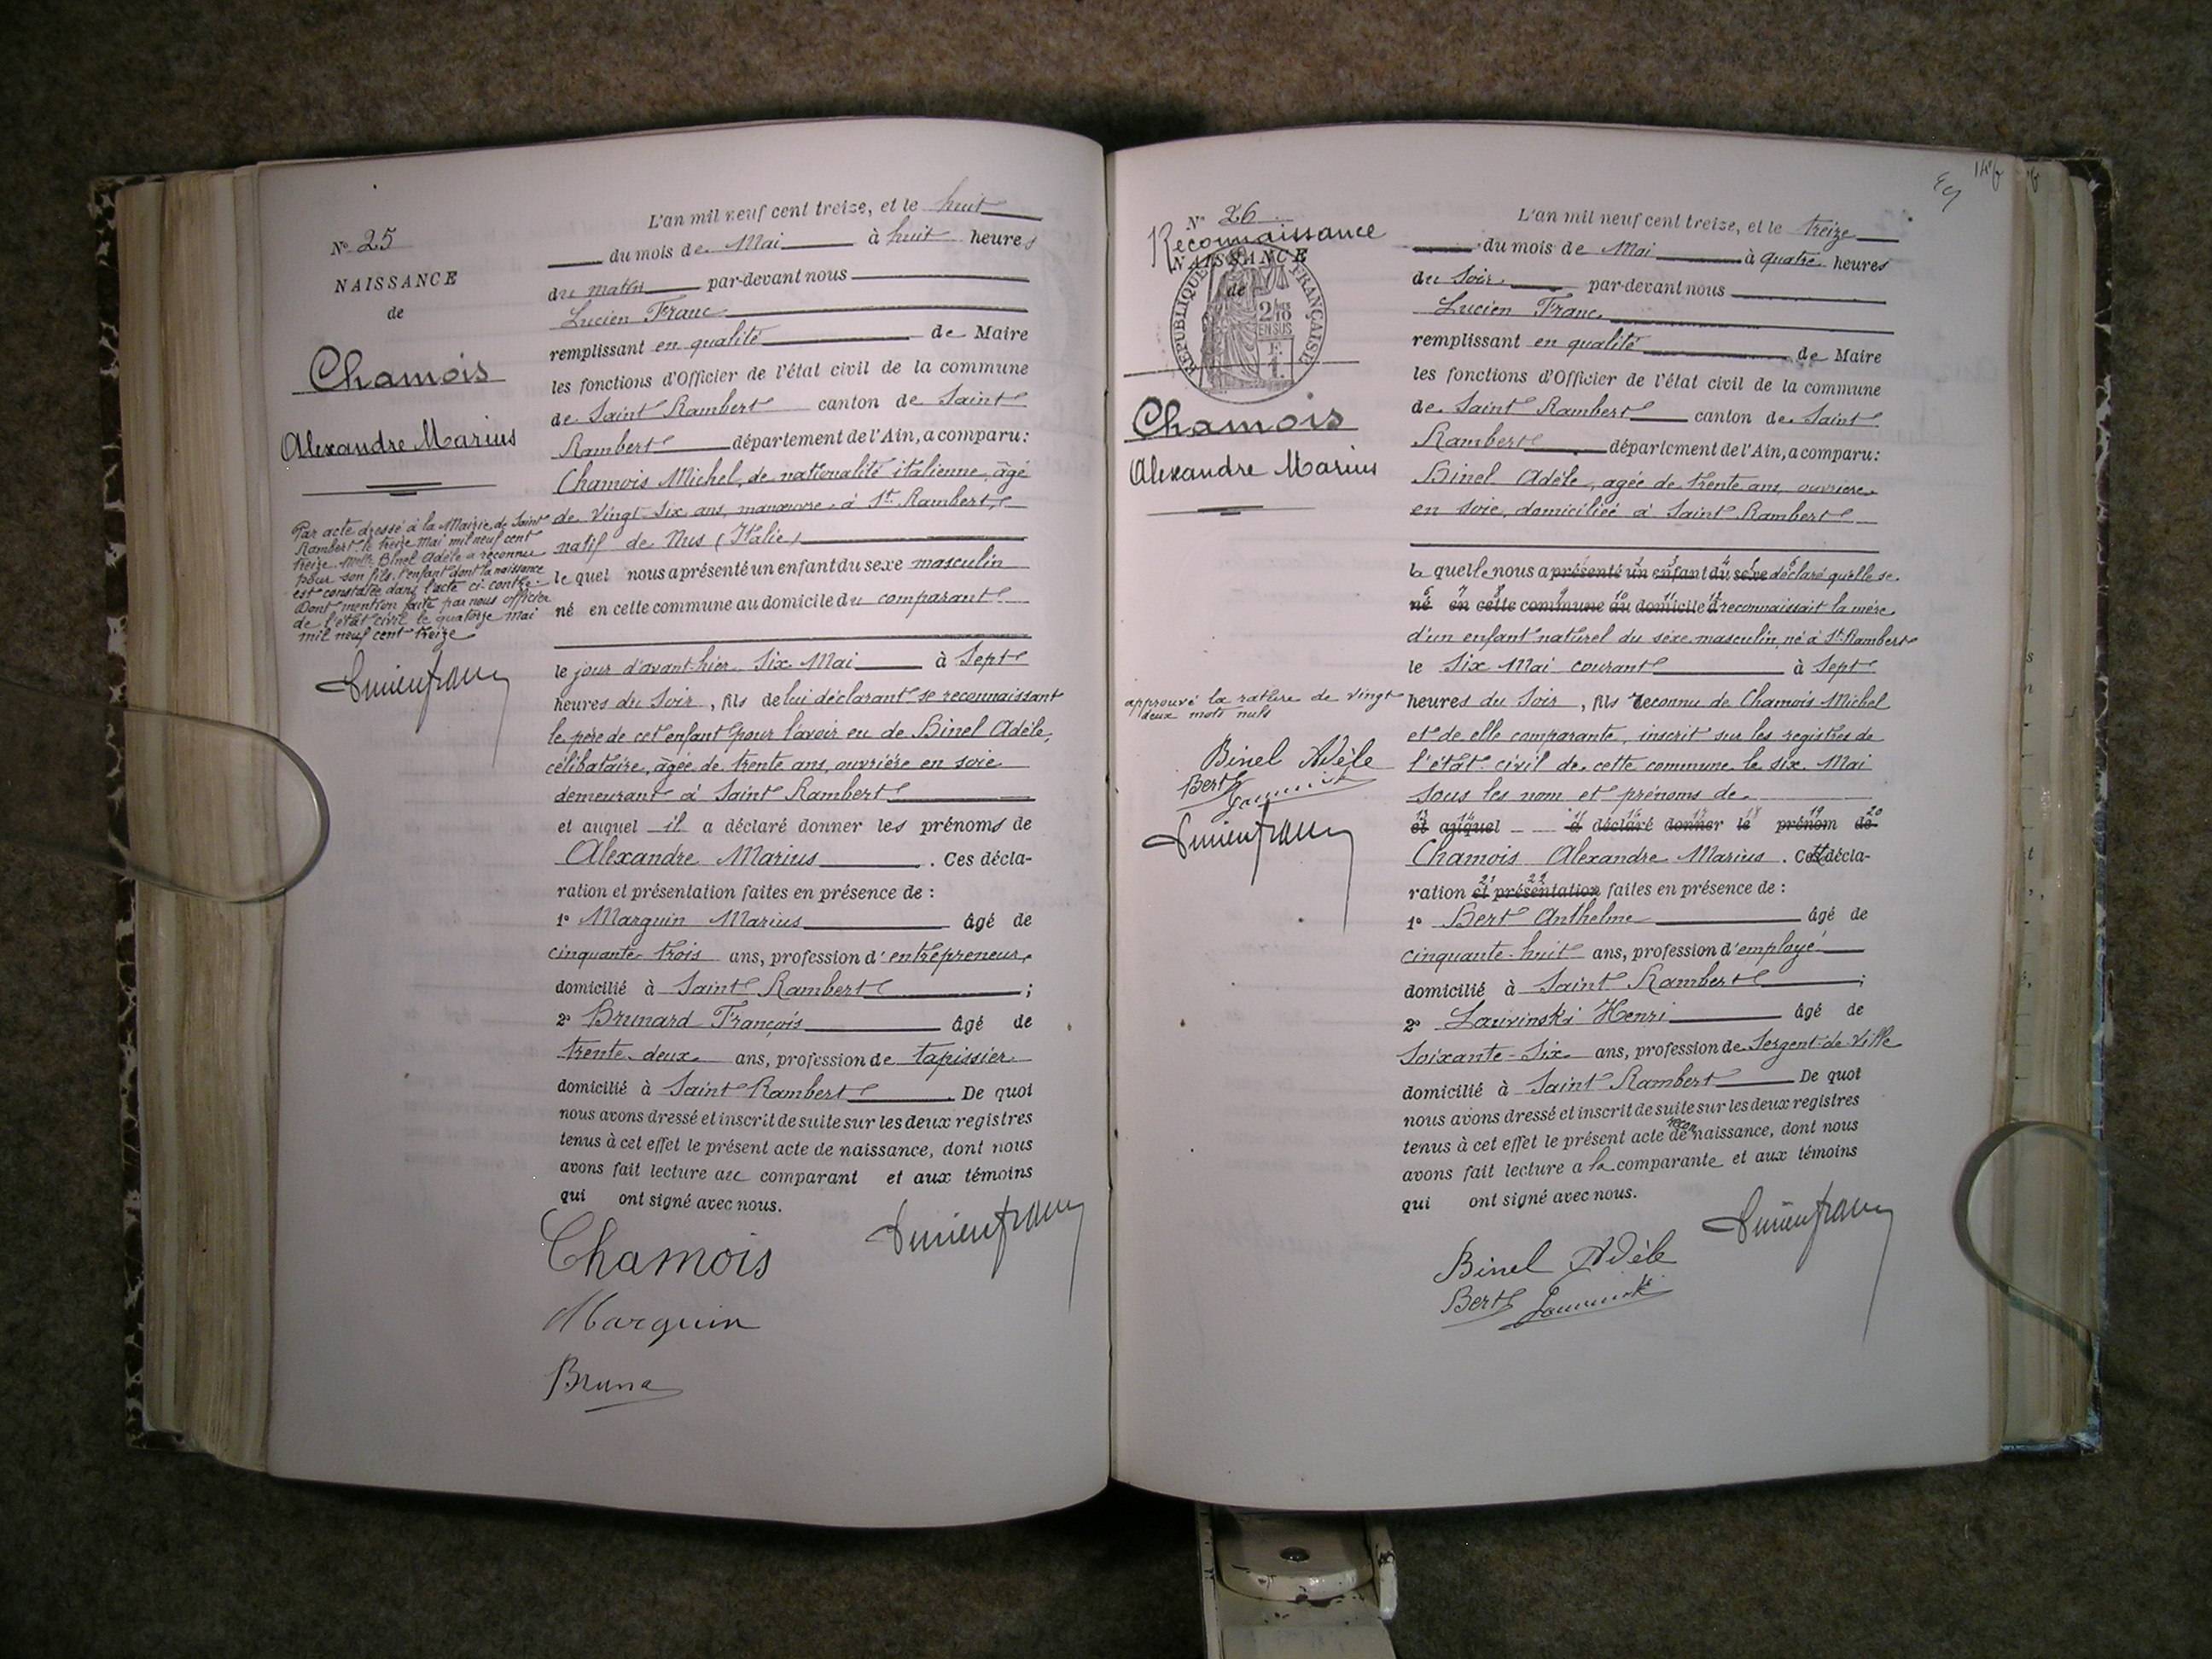 N° 25
NAISSANCE
de
Chamois
Alexandre Marius
Par acte dressé à la Mairie de Saint
Rambert le treize Mai mil neuf cent
treize Melle Binel Adèle a reconnu
pour son fils, l'enfant dont la naissance
est constatée dans l'acte ci-contre.
Dont mention faite par nous officier
de l'état civil le quatorze Mai
mil neuf cent treize
Lucien Franc
L'an mil neuf cent treize, et le huit
du mois de Mai à huit heures
du matin par-devant nous
Lucien Franc
remplissant en qualité de Maire
les fonctions d'Officier de l'état civil de la commune
de Saint Rambert canton de Saint
Rambert département de l'Ain, a comparu:
Chamois Michel, de nationalité italienne, âgé
de vingt six ans, manœuvre à St Rambert,
natif de Nus (Italie)
le quel nous a présenté un enfant du sexe masculin
né en cette commune au domicile du comparant
le jour d'avant-hier Six Mai à Sept
heures du Soir, fils de lui déclarant se reconnaissant
le père de cet enfant pour l'avoir eu de Binel Adèle,
célibataire, âgée de trente ans, ouvrière en soie
demeurant à Saint Rambert
et auquel il a déclaré donner les prénoms de
Alexandre Marius. Ces décla-
ration et présentation faites en présence de :
1° Marguin Marius âgé de
cinquante-trois ans, profession d'entrepreneur,
domicilié à Saint Rambert ;
2° Brunard François âgé de
trente-deux ans, profession de tapissier
domicilié à Saint Rambert. De quoi
nous avons dressé et inscrit de suite sur les deux registres
tenus à cet effet le présent acte de naissance, dont nous
avons fait lecture au comparant et aux témoins
qui ont signé avec nous.
Chamois Lucien Franc
Marguin
Bruna
146
N° 26
Reconnaissance
NAISSANCE
de
RÉPUBLIQUE FRANÇAISE
2/10
EN SUS
F.
1.
Chamois
Alexandre Marius
approuvé la rature de vingt
deux mots nuls
Binel Adèle
Bert
Lucien Franc
L'an mil neuf cent treize, et le treize
du mois de Mai à quatre heures
du Soir par-devant nous
Lucien Franc
remplissant en qualité de Maire
les fonctions d'Officier de l'état civil de la commune
de Saint Rambert canton de Saint
Rambert département de l'Ain, a comparu:
Binel Adèle, agée de trente ans, ouvrière
en soie, domiciliée à Saint Rambert
la quelle nous a présenté un enfant du sexe déclaré qu'elle se
né en cette commune au domicile d reconnaissait la mère
d'un enfant naturel du sexe masculin, né à St Rambert
le Six Mai courant à Sept
heures du Soir, fils reconnu de Chamois Michel
et de elle comparante, inscrit sur les registres de
l'état-civil de cette commune le six Mai
sous les nom et prénoms de
et auquel a déclaré donner le prénom de
Chamois Alexandre Marius. Cette décla-
ration et présentation faites en présence de :
1° Bert Anthelme âgé de
cinquante-huit ans, profession d'employé
domicilié à Saint Rambert ;
2° Lauvinski Henri âgé de
Soixante-Six ans, profession de Sergent de Ville
domicilié à Saint Rambert De quoi
nous avons dressé et inscrit de suite sur les deux registres
tenus à cet effet le présent acte de reconnaissance, dont nous
avons fait lecture a la comparante et aux témoins
qui ont signé avec nous.
Lucien Franc
Binel Adèle
Bert